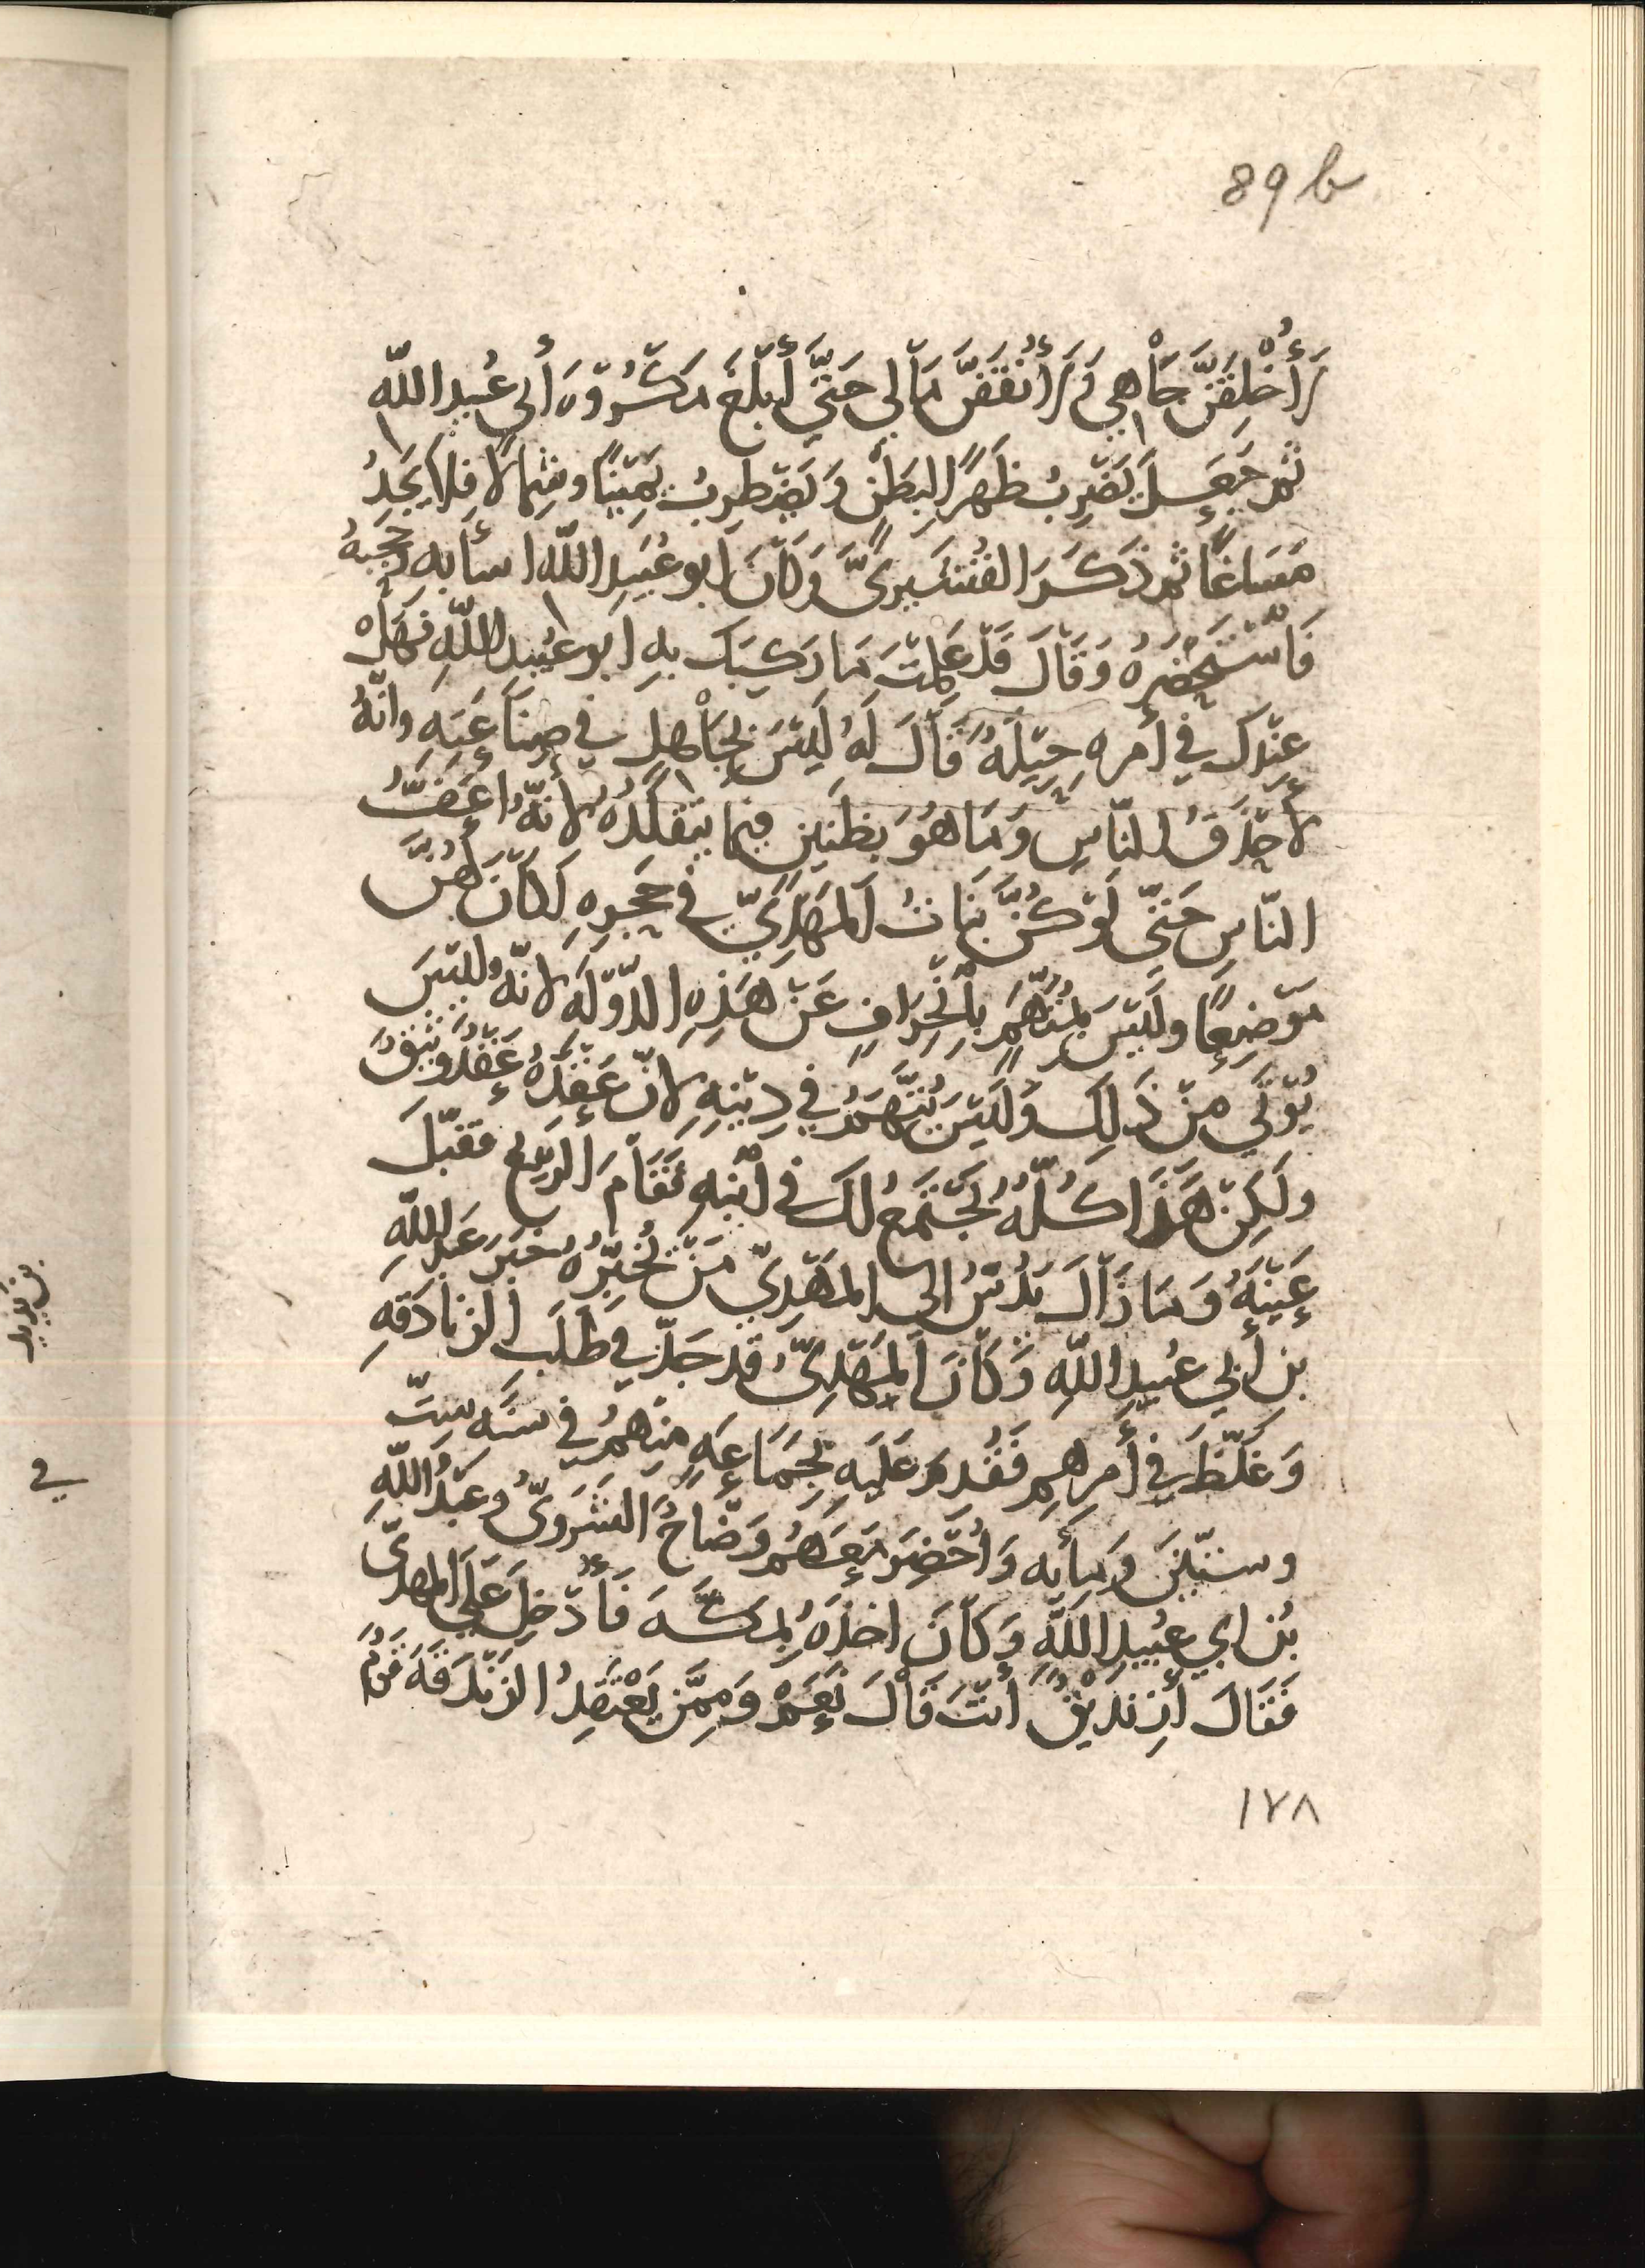 89 b
لَأُخْلِقَنَّ جَاهِي وَلَأُنْفِقَنَّ مَالِي حَتَّى أَبْلُغَ مَكْرُوهَ أَبِي عُبَيدِ اللهِ
ثم جَعَلَ يَضْرِبُ ظَهْرًا لِبَطْنٍ وَيَضْطَرِبُ يَمِيْنًا وشِمَالًا فلا يَجِدُ
مَسَاغًا ثم ذَكَرَ القُشَيْرِيَّ وَكَانَ ابو عُبَيدِ اللهِ اسأَ بِهِ حَجَبهُ
فَاسْتَحْضَرَهُ وَقَالَ قَدْ عَلِمْتَ مَا رَكِبَكَ بِهِ ابو عُبَيدِ اللهِ فهَلْ
عِنْدَكَ في أَمرِهِ حِيْلَةٌ قَالَ لَهُ لَيْسَ بِجَاهِلٍ في صِنَاعَتِهِ وانَّهُ
لَأَحْذَقُ النّاسِ وَمَا هُوَ بِظَنِيْنٍ فيما يَتَقَلَّدُهُ لأنَّهُ اعَفُّ
النّاسِ حَتَّى لَوْ كُنَّ بَنَاتُ المَهْدِيِّ في حَجْرِهِ لَكَانَ لَهُنَّ
مَوْضِعًا ولَيْسَ بِمُتَّهَمٍ بِانْحِرَافٍ عَنْ هَذِهِ الدَّوْلَةِ لانّهُ لَيْسَ
يُؤْتَى مِنْ ذَلِكَ وَلَيْسَ يُتَّهَمُ في دِيْنِهِ لانّ عَقْدَهُ عَقْدٌ وَثِيْقٌ
ولَكِنْ هَذَا كُلُّهُ يَجْتَمِعُ لكَ في ابْنِهِ فَقَامَ الرّبِيْعُ فقَبّلَ
عَيْنَيْهِ وَمَا زَالَ يَدُسُّ الى المَهْدِيّ مَنْ يُخْبِرُهُ بخَبَرِ عَبْدِ اللهِ
بنِ أَبِي عُبَيدِ اللهِ وَكَانَ المَهْدِيُّ قَد جَدَّ في طَلَبِ الزنادَقَهِ
وَغَلَّظَ في أَمرِهِم فَقُدِمَ عَلَيهِ بِجَمَاعَةٍ مِنْهُمْ في سنَةِ سِتّ
وسِتّينَ ومِائَه وَأُحْضِرَ مَعَهُم وَضَّاحُ الشَرَوِيُّ وعَبْدُ اللهِ
بْنُ ابي عُبَيدِ اللهِ وَكَانَ اخَذَهُ بِمَكَّةَ فَأُدْخِلَ عَلَى المهدِيّ
فَقَالَ أَزِنْدِيْقٌ أَنْتَ قَالَ نَعَمْ وَمِمَّنْ يَعْتَقِدُ الزَنْدَقَةَ
١٧٨
في